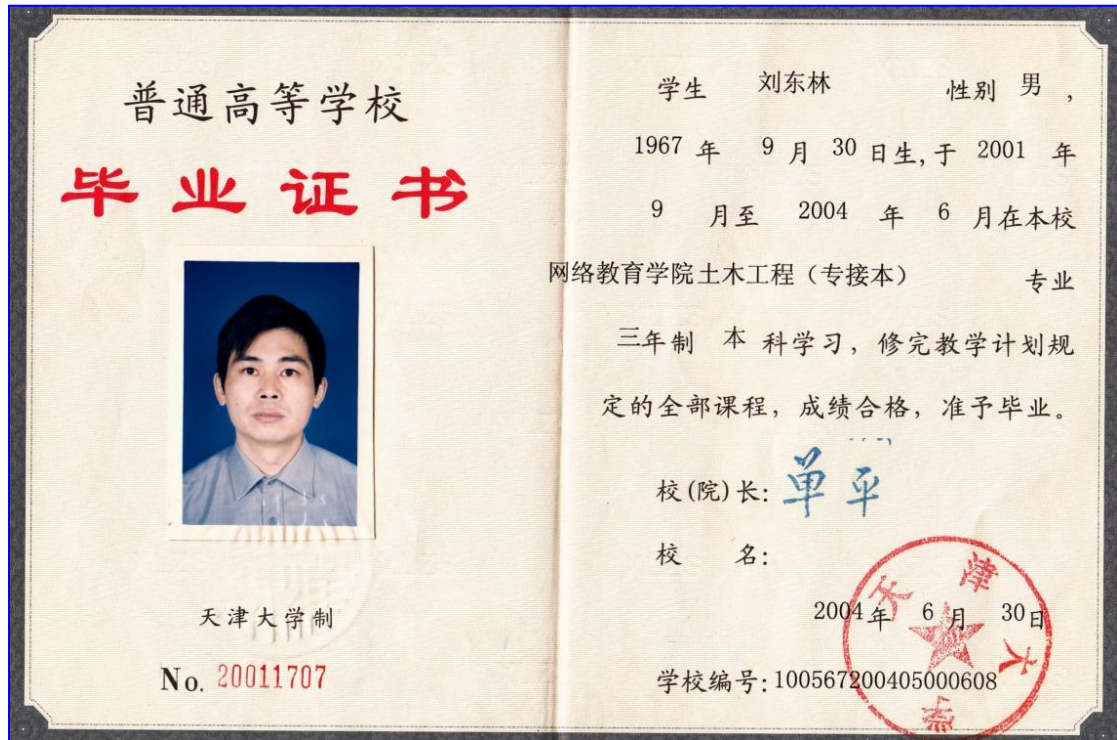 普通高等学校
毕业证书
天津大学制
No. 20011707
学生 刘东林 性别 男,
1967 年 9 月 30 日生,于 2001 年
9 月至 2004 年 6 月在本校
网络教育学院土木工程（专接本） 专业
三年制 本 科学习，修完教学计划规
定的全部课程，成绩合格，准予毕业。
校(院)长: 单平
校 名:
天津大学
2004年 6月 30日
学校编号: 100567200405000608